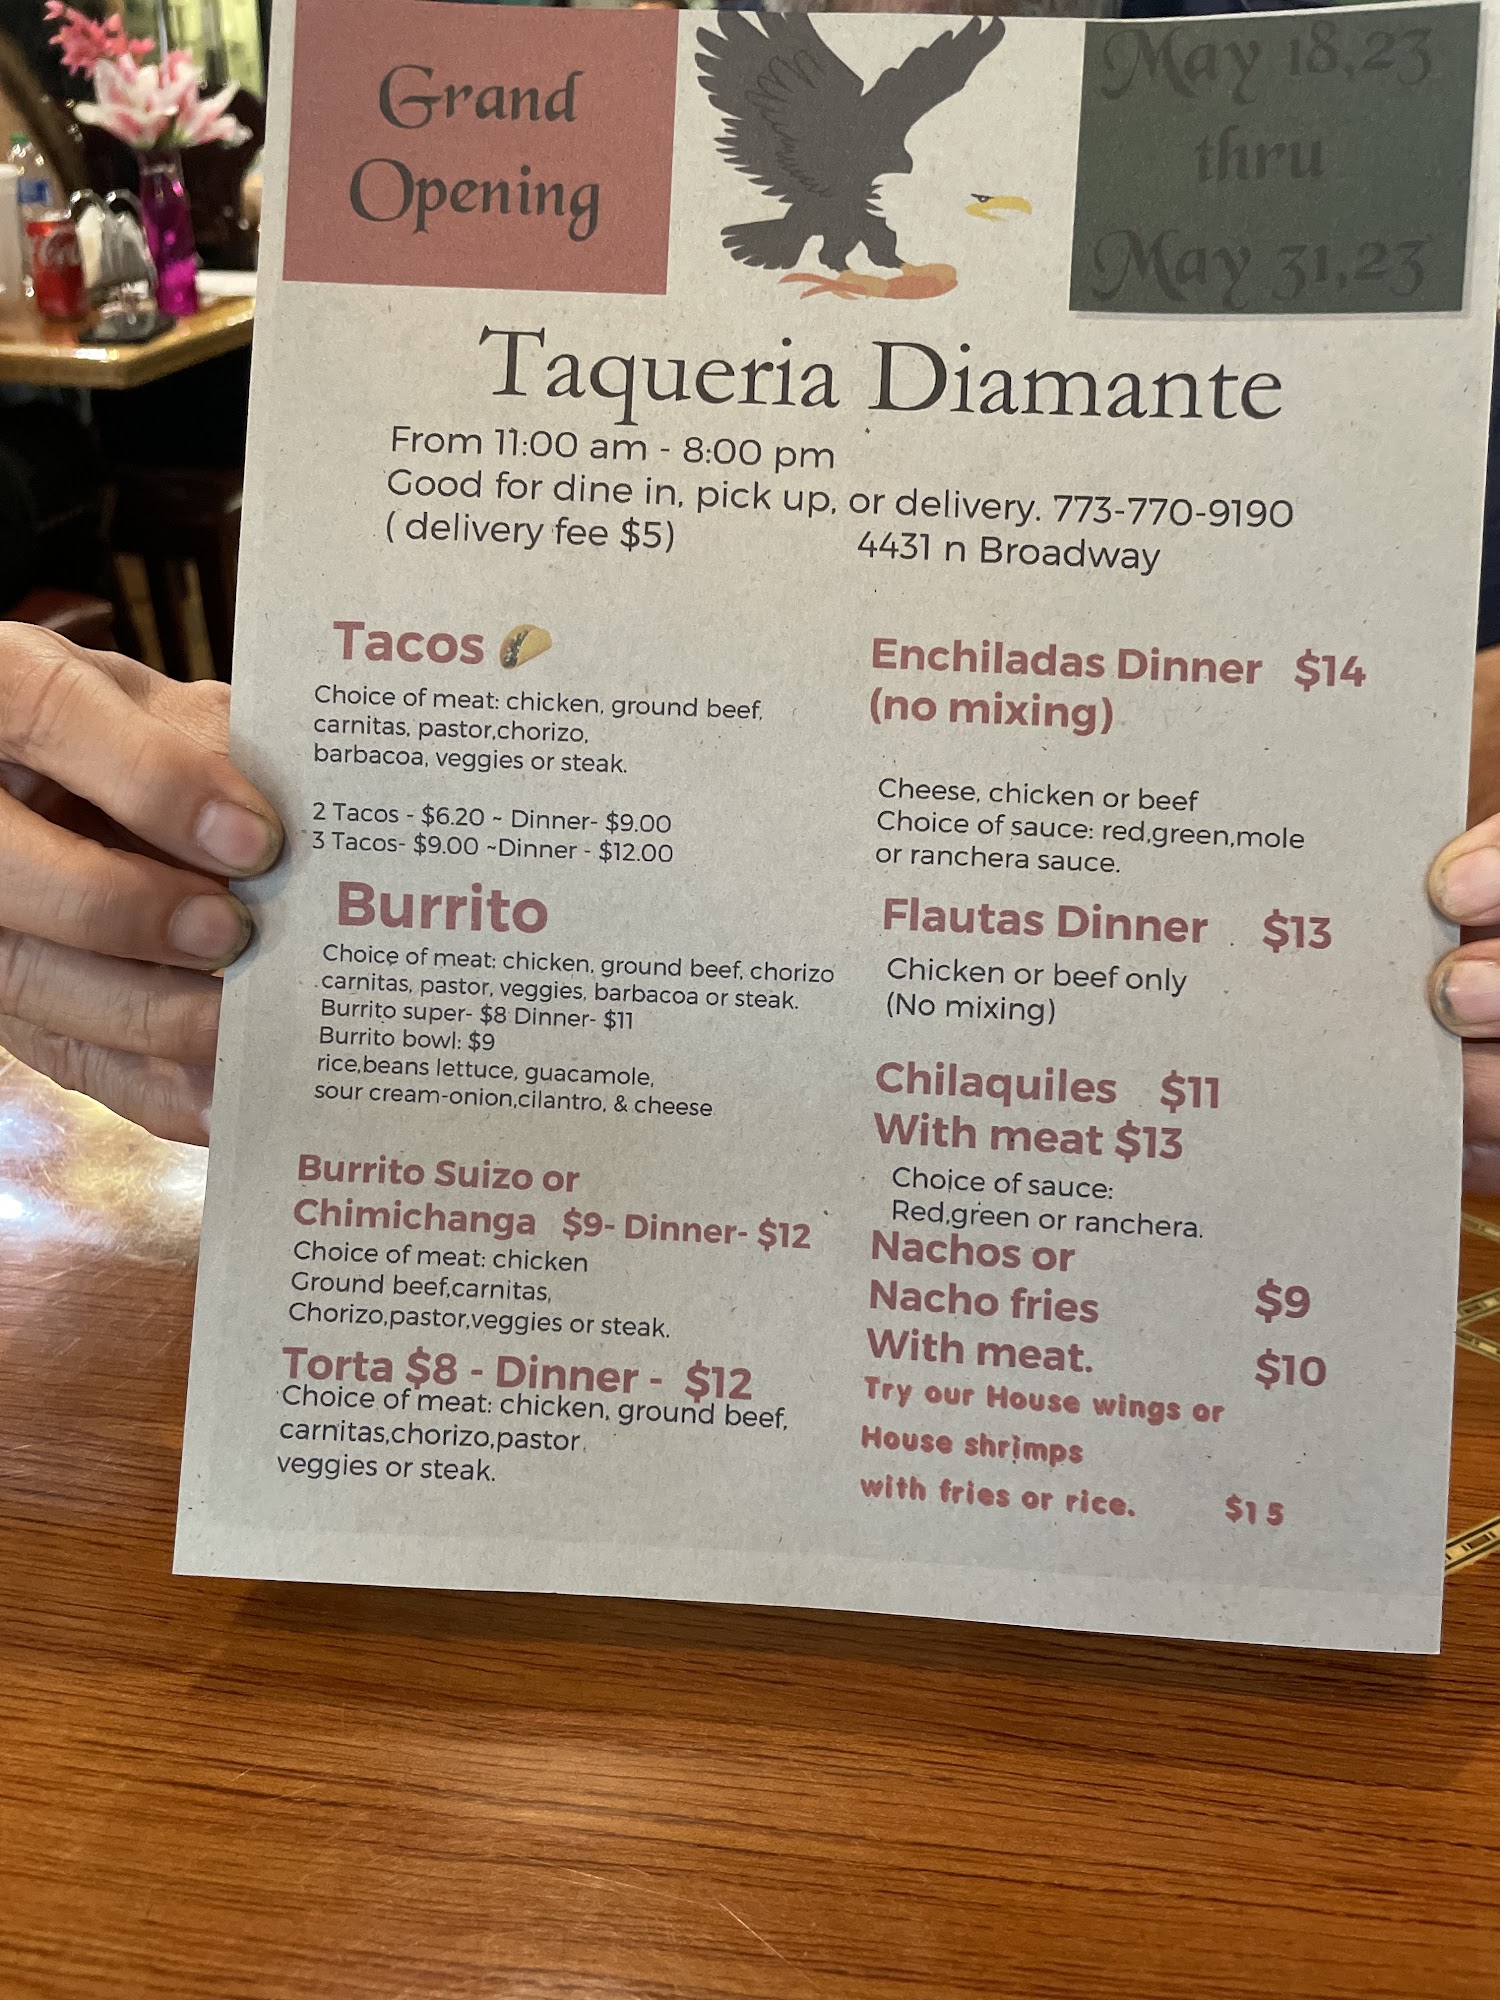 Grand
Opening
May 18,23
thru
May 31,23
Taqueria Diamante
From 11:00 am - 8:00 pm
Good for dine in, pick up, or delivery. 773-770-9190
( delivery fee $5)
4431 n Broadway
Tacos
Choice of meat: chicken, ground beef,
carnitas, pastor,chorizo,
barbacoa, veggies or steak.
2 Tacos - $6.20 ~ Dinner- $9.00
3 Tacos- $9.00 ~Dinner - $12.00
Burrito
Choice of meat: chicken, ground beef, chorizo
carnitas, pastor, veggies, barbacoa or steak.
Burrito super- $8 Dinner- $11
Burrito bowl: $9
rice,beans lettuce, guacamole,
sour cream-onion,cilantro, & cheese
Burrito Suizo or
Chimichanga $9- Dinner- $12
Choice of meat: chicken
Ground beef,carnitas,
Chorizo,pastor,veggies or steak.
Torta $8 - Dinner - $12
Choice of meat: chicken, ground beef,
carnitas,chorizo,pastor,
veggies or steak.
Enchiladas Dinner $14
(no mixing)
Cheese, chicken or beef
Choice of sauce: red,green,mole
or ranchera sauce.
Flautas Dinner $13
Chicken or beef only
(No mixing)
Chilaquiles $11
With meat $13
Choice of sauce:
Red,green or ranchera.
Nachos or
Nacho fries $9
With meat. $10
Try our House wings or
House shrimps
with fries or rice. $15